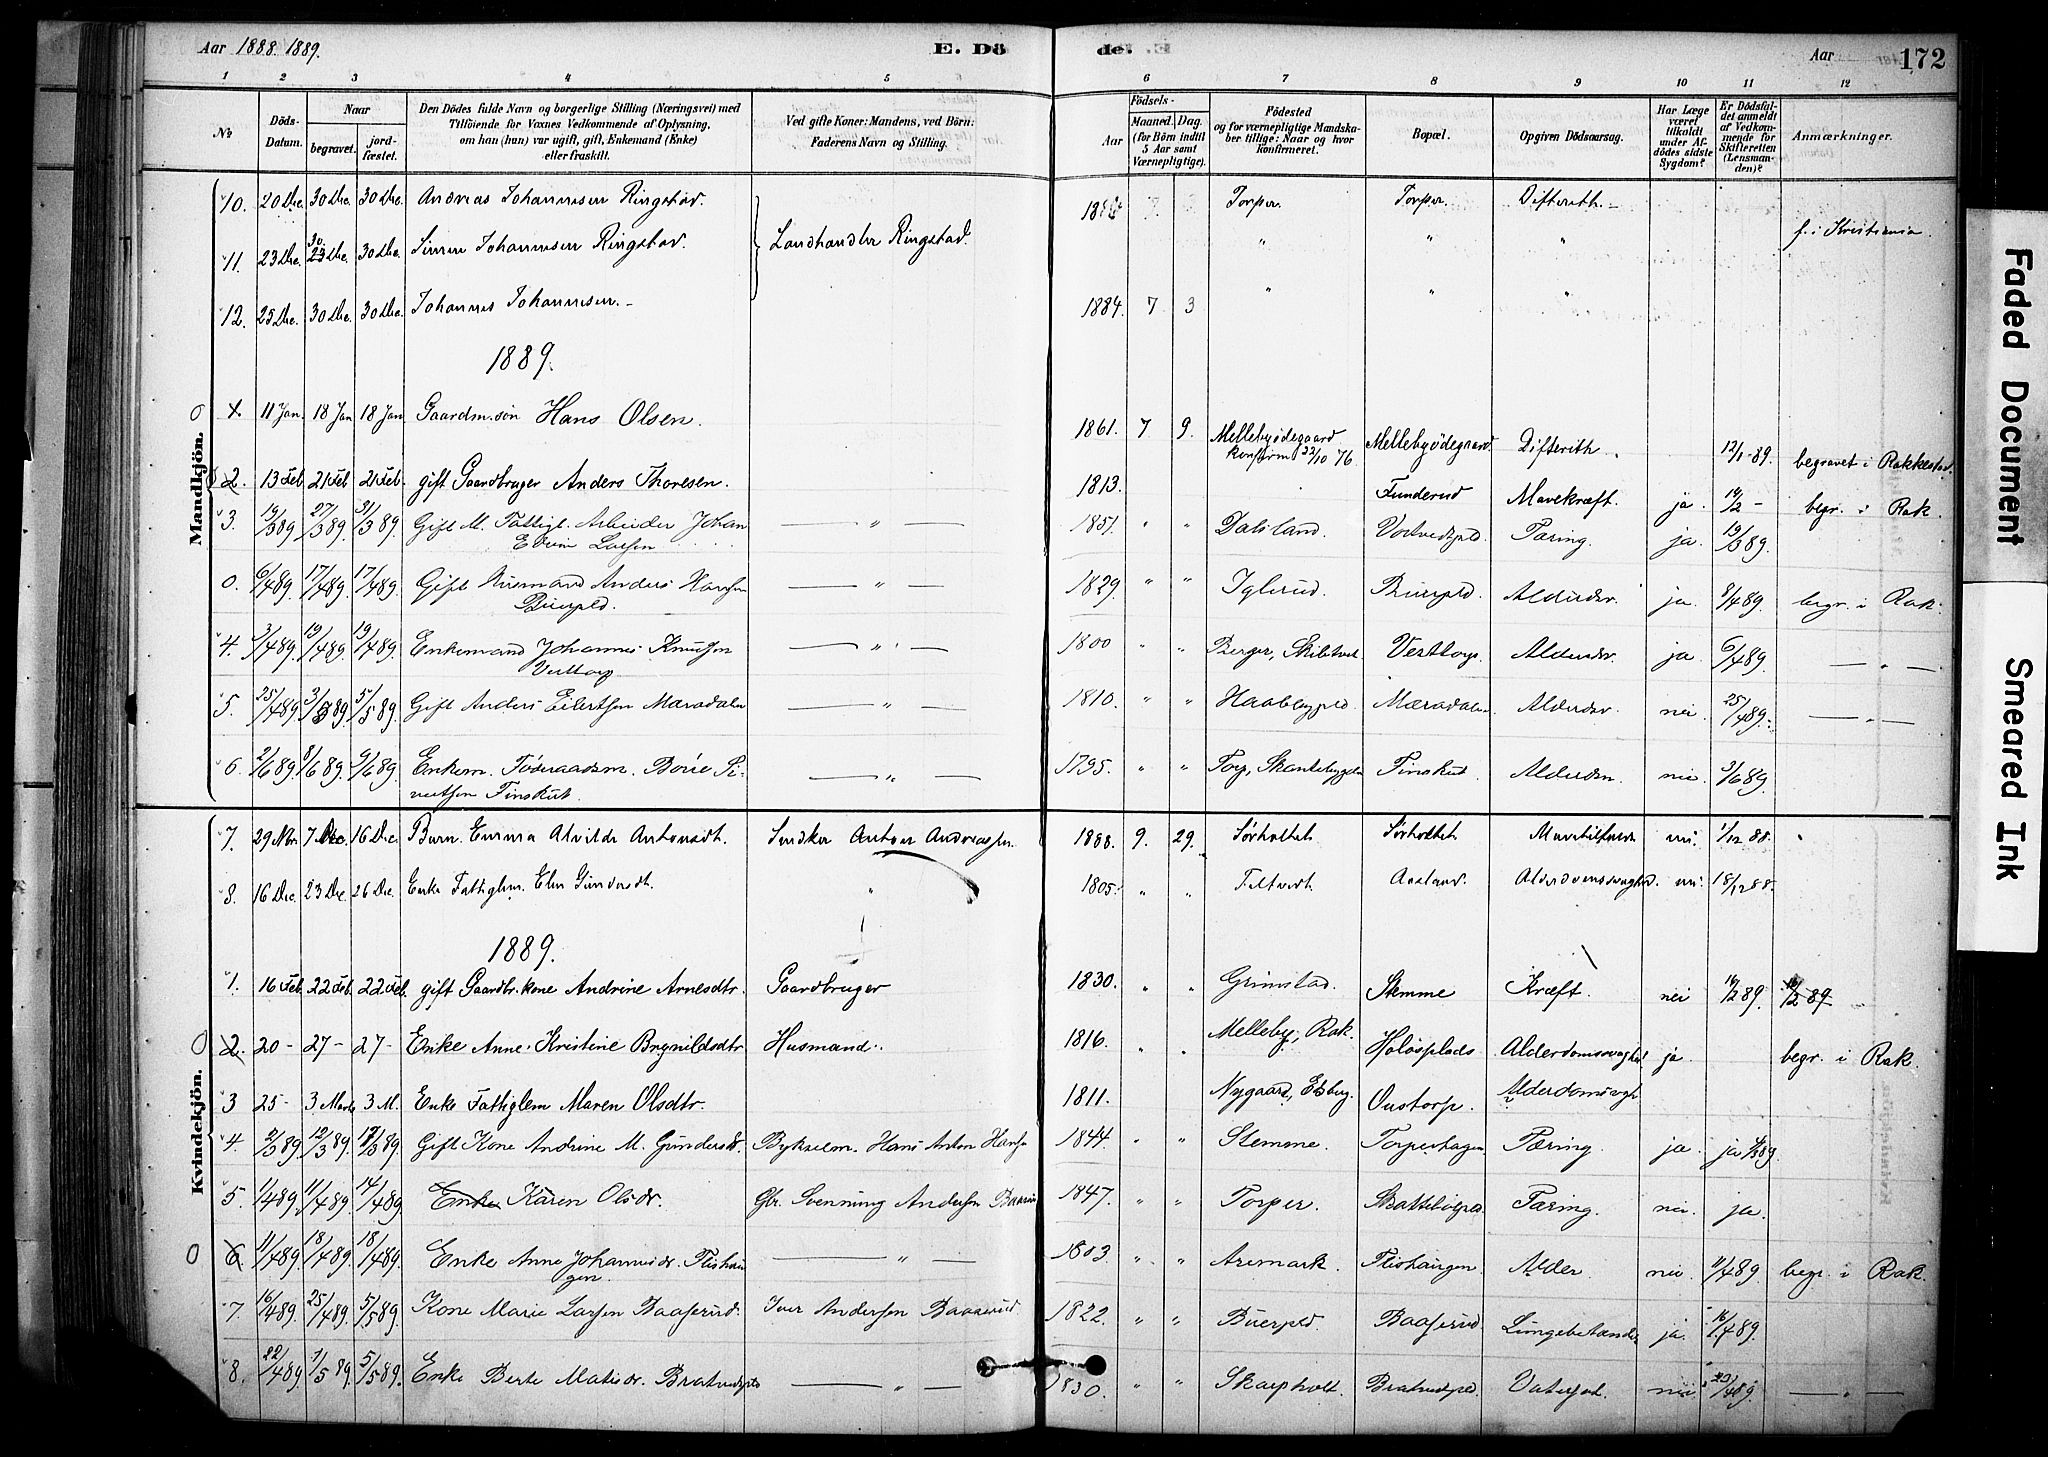 Aar 1888. 1889.
E. Dö
de.
Aar
172
1 2 3 4 5 6 7 8 9 10 11 12
No
Döds-Datum.
Naar
begravet.
jord-fæstet.
Den Dödes fulde Navn og borgerlige Stilling (Næringsvei) med
Tilföiende for Voxnes Vedkommende af Oplysning,
om han (hun) var ugift, gift, Enkemand (Enke)
eller fraskilt.
Ved gifte Koner: Mandens, ved Börn:
Faderens Navn og Stilling.
Födsels-
Aar
Maaned. Dag.
(for Börn indtil
5 Aar samt
Værnepligtige).
Födested
og for værnepligtige Mandska-
ber tillige: Naar og hvor
konfirmeret.
Bopæl.
Opgiven Dödsaarsag.
Har Læge
været
tilkaldt
under Af-
dödes sidste
Sygdom?
Er Dödsfal-
det anmeldt
af Vedkom-
mende for
Skifteretten
(Lensman-
den)?
Anmærkninger.
Mandkjön.
10. 20 Dec. 30 Dec. 30 Dec. Andreas Johannesen Ringstad. Torper. Torper. Difterith.
11. 23 Dec. 30 23 Dec. 30 Dec. Johannesen Ringstad. Landhandler Ringstad. " " " f. i Kristiania.
12. 25 Dec. 30 Dec. 30 Dec. Johannes Johannesen. 1884. 7 3 " " "
1889.
1. 11 Jan. 18 Jan 18 Jan Gaardm.søn Hans Olsen. 1861. 7 9. Mellebyödegaard konfirm 22/10 76 Mellebyödegaard. Difterith. 12/1-89. begravet i Rakkestad.
2. 13 Feb. 21 Feb 21 Feb. gift Gaardbruger Anders Thoresen. 1813. Funderud Mavekræft. ja. begr. i Rak.
3. 19/3 89 27/3 89. 31/3 89. Gift M. Fattigl. Arbeider Johan Edvin Larsen — " — 1851. " " Dalsland. Tæring. ja. 19/3 89.
0. 6/4 89. 17/4 89. 17/4 89. Gift Husmand Anders Hansen Buerpld. — " — 1829. " " Iglerud. Buerpld. Aldersv. ja. 8/4 89. begr. i Rak.
4. 3/4 89. 19/4 89. 19/4 89. Enkemand Johannes Knutsen Vesttorp — " — 1800 " " Berger, Skibtvet. Vesttorp. Aldersv. ja. 6/4 89. — " —
5. 25/4 89. 5/5 89. Gift Anders Eilertsen Mæradalen — " — 1810. " " Haabbypld. Mæradalen. Aldersv. nei. 25/4 89. — " —
6. 2/6 89. 8/6 89. 9/6 89. Enkem. Föderaadsm. Finskut. — " — 1795. " " Torp, Finskut. nei. 3/6 89.
Kvindekjön.
7. 29 Nov. 7 Dec. 16 Dec. Barn Emma Alvilde Antonsdt. Snedker Anton Andreassen. 1888. 9. 29. Sörholtet. Sörholtet. nei. 1/12 88.
8. 16 Dec. 23 Dec 26 Dec. Enke Fattiglem. Elen Gundersdt. " 1805. " " Feltvedt. Aasland. Alderdomssvaghed. nei. 18/12 88.
1889.
1. 16 Feb. 22 Feb. 22 Feb. gift Gaardbr.kone Andrine Arnesdtr. Gaardbruger 1830. " " Grimstad. Stemme Kræft. nei 2 89.
2. 20 - 27 - 27 - Enke Anne Kristine Brynildsdtr Husmand. 1816. " " Melleby, Rak. Holösplads Alderdomssvaghed ja begr. i Rak.
3 25 - 3 Marts 3 M. Enke Fattiglem Maren Olsdtr. 1811. Nygaard, Eidsberg. Oustorp. Alderdomssvagh
4. 2/3 89. 12/3 89. 17/3 89. Gift Kone Andrine M. Gundersdr. Bykselm. Hans Anton Hansen 1844 " " Stemme. Torperhagen Tæring. ja. ja 4/3 89.
5 1/4 89. 11/4 89. 14/4 89. Enke Karen Olsdr. Gbr. Svenning Andersen 1847. " " Torper. Tæring. nei. ja.
6 11/4 89. 18/4 89. 18/4 89. Enke Anne Johannesdr. Flishaugen. — " — 1803. " " Aremark. Flishaugen. Alder. nei. 11/4 89. begr. i Rak.
7. 16/4 89. 25/4 89. 5/5 89. Kone Marie Larsen Baaserud. Iver Andersen Baaserud. 1822. " " Buerpld. Baaserud. Lungebetændelse ja. 16/4 89.
8. 22/4 89. 1/5 89. 5/5 89. Enke Berte Matisdr. Bratvedtpld — " — 1830. " " Skarpholt. Bratvedtpld. Vatersot. nei 23/4 89. — " —
Faded Document
Smeared Ink